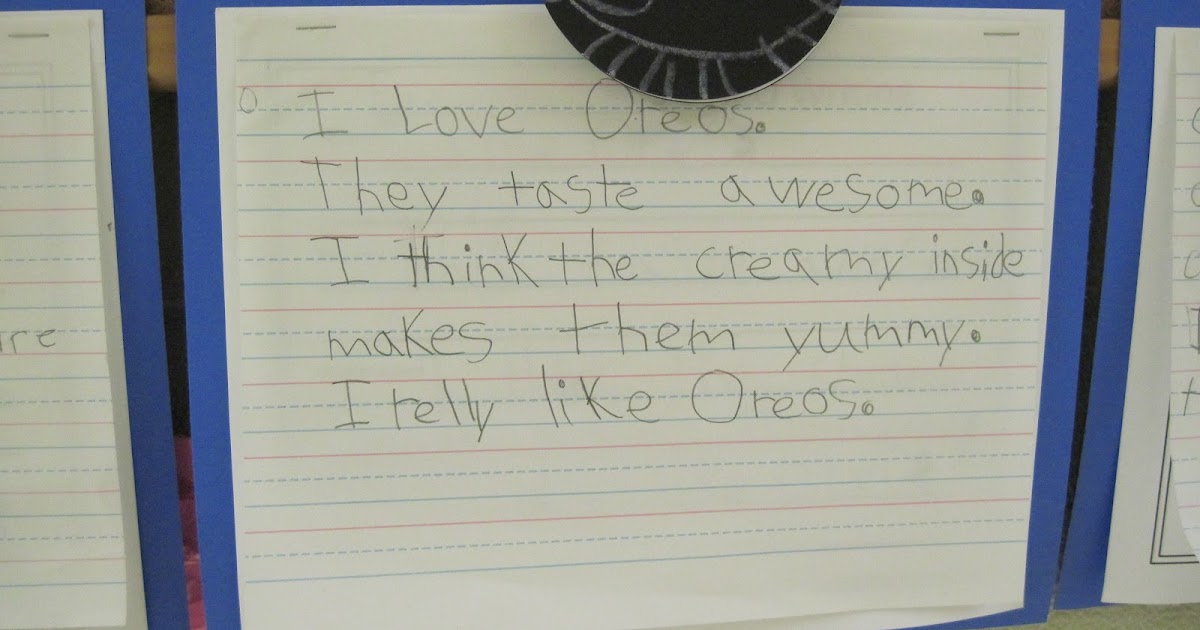 I Love Oreos.
They taste awesome.
I think the creamy inside
makes them yummy.
I relly like Oreos.